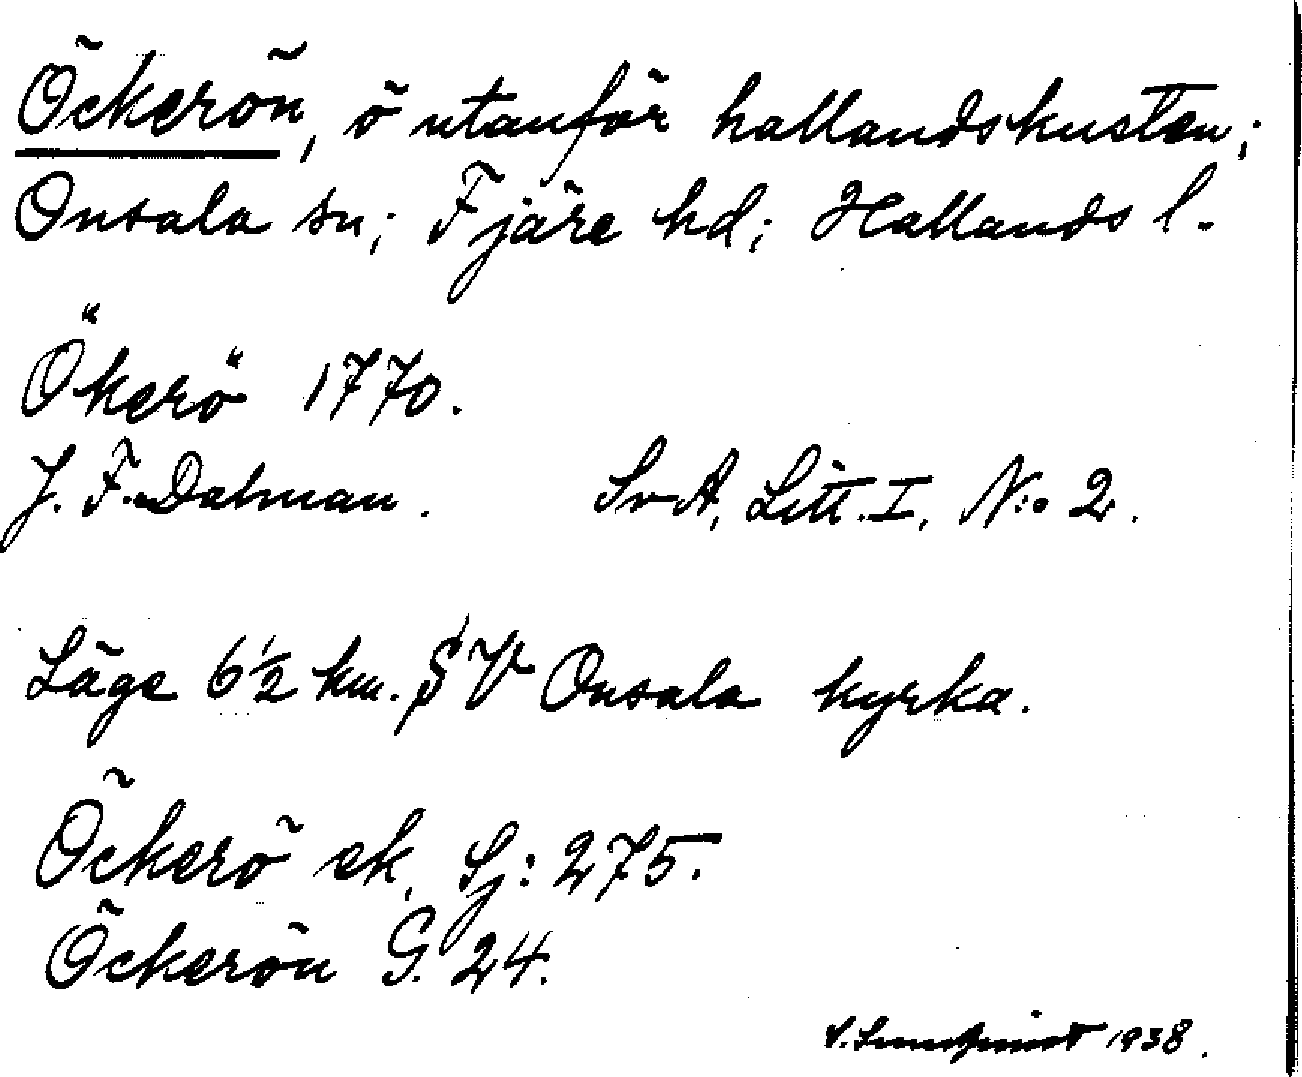 Öckerön, ö utanför hallandskusten;
Onsala sn; Fjäre hd; Hallands l.
Ökerö 1770.
J. F. Dalman. SvA, Litt. I, N:o 2.
Läge 6 1/2 km. SV Onsala kyrka.
Öckerö ek. Sj: 275.
Öckerön G. 24.
1938.